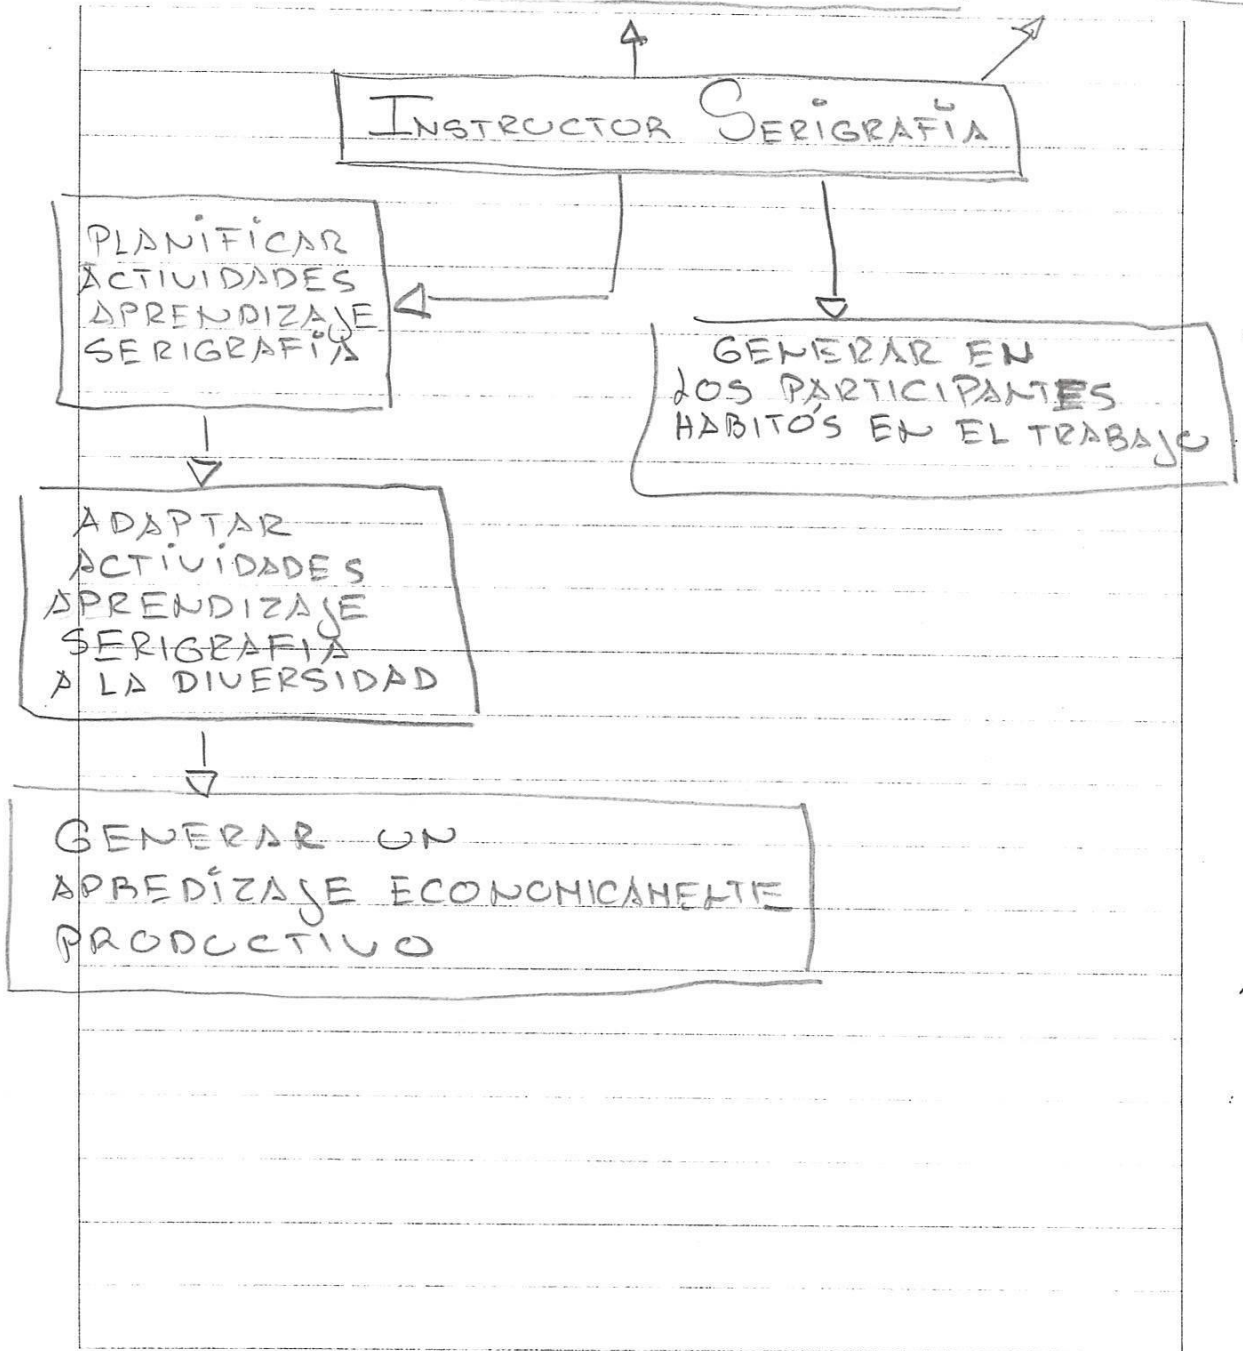 INSTRUCTOR SERIGRAFÍA
PLANIFICAR
ACTIVIDADES
APRENDIZAJE
SERIGRAFÍA
GENERAR EN
LOS PARTICIPANTES
HABITÓS EN EL TRABAJO
ADAPTAR
ACTIVIDADES
APRENDIZAJE
SERIGRAFIA
A LA DIVERSIDAD
GENERAR UN
APREDIZAJE ECONOMICAMENTE
PRODUCTIVO